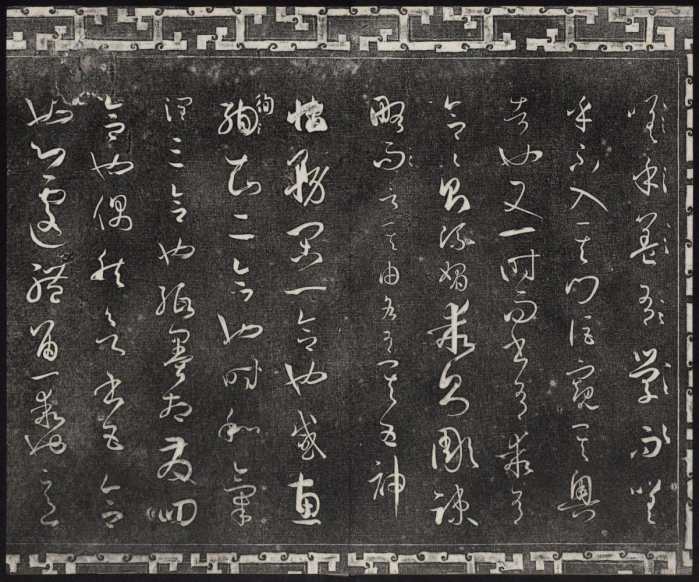 嗟
乎不入其門詎窺其奧
者也又一時而書有乖有
合合則流媚乖則彫疎
略而言其由各有其五神
怡務閑一合也感惠
徇知二合也時和氣
潤三合也紙墨相發四
合也偶然欲書五合
也心遽體留一乖也意